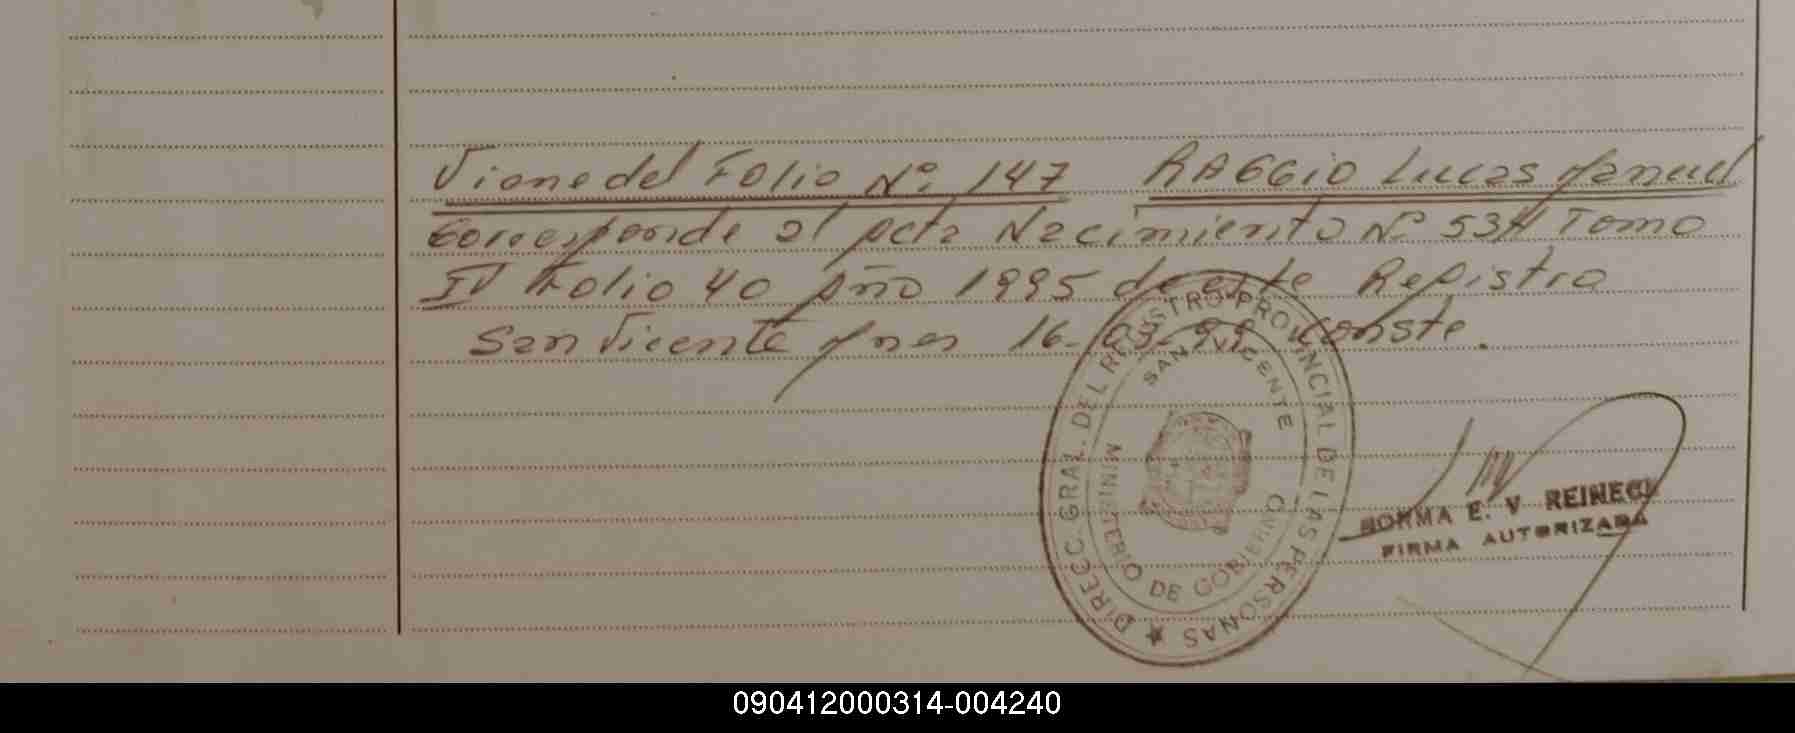 Viene del Folio Nº 147 RAGGIO Lucas Manuel
Corresponde al acta Nacimiento Nº 53A Tomo
IV Folio 40 Año 1995 de este Registro
San Vicente Mnes 16-03-99 Conste.
DIRECC. GRAL. DEL REGISTRO PROVINCIAL DE LAS PERSONAS ★
SAN VICENTE
MINISTERIO DE GOBIERNO
NORMA E. V. REINECK
FIRMA AUTORIZADA
090412000314-004240